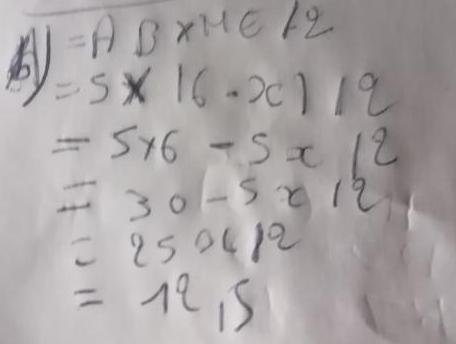 A) = A B x M E / 2
= 5 x (6 - x) / 2
= 5x6 - 5x / 2
= 30 - 5x / 2
= 25x / 2
= 12,5